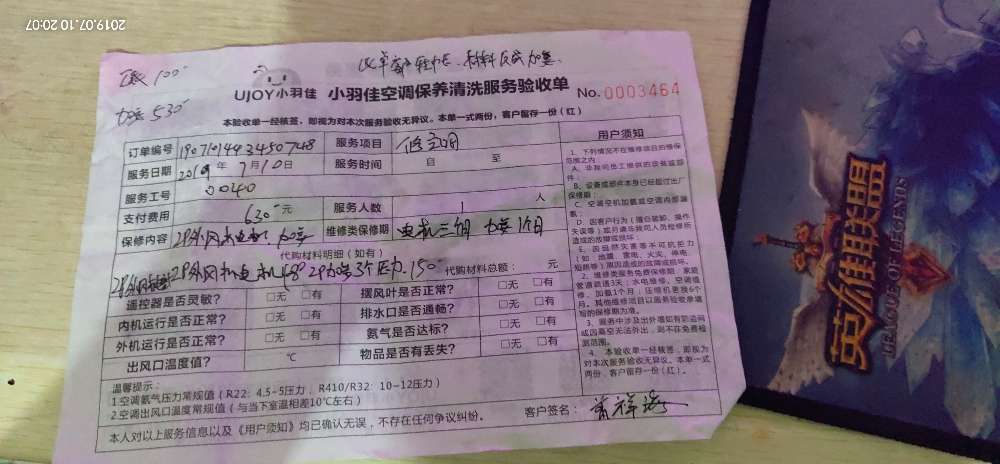 2019.07.10 20:07
100
加氟 530
UJOY小羽佳 小羽佳空调保养清洗服务验收单 No.0003464
本验收单一经核签，即视为对本次服务验收无异议。本单一式两份，客户留存一份（红）
订单编号 服务项目 修空调
服务日期 2019年7月10日 服务时间 自 至
服务工号 0040
支付费用 630元 服务人数 1 人
保修内容 2P外风机电机 加氟 维修类保修期 电机三个月 加氟1个月
代购材料明细（如有）
代购材料总额： 元
遥控器是否灵敏？ □无 □有 摆风叶是否正常？ □无 □有
内机运行是否正常？ □无 □有 排水口是否通畅？ □无 □有
外机运行是否正常？ □无 □有 氨气是否达标？ □无 □有
出风口温度值？ ℃ 物品是否有丢失？ □无 □有
温馨提示：
1.空调氨气压力常规值（R22：4.5-5压力，R410/R32：10-12压力）
2.空调出风口温度常规值（与当下室温相差10℃左右）
客户签名：
本人对以上服务信息以及《用户须知》均已确认无误，不存在任何争议纠纷。
用户须知
1、下列情况不在维修项目的维保
范围之内
A、非我司员工提供的设备或部
件；
B、设备或部件本身已经超过出厂
保修期；
C、空调空机加氟或空调内部漏
氟；
D、因客户行为（擅自装卸、操作
失误等）或另请非我司人员检修所
造成的故障或损坏；
E、因自然灾害等不可抗拒力
（如：地震、雷电、火灾、停电、
短路等）原因造成的故障或损坏。
2、维修类服务免费保修期：家庭
管道疏通3天；水电维修、空调维
修、加氟1个月；压缩机更换6个
月。其他维修项目以服务验收单填
写的保修期为准。
3、服务中涉及出外墙如有防盗网
或因高空无法外出，则不在免费检
测范围。
4、本验收单一经核签，即视为
对本次服务验收无异议。本单一式
两份，客户留存一份（红）。
英雄联盟
LEAGUE OF LEGENDS